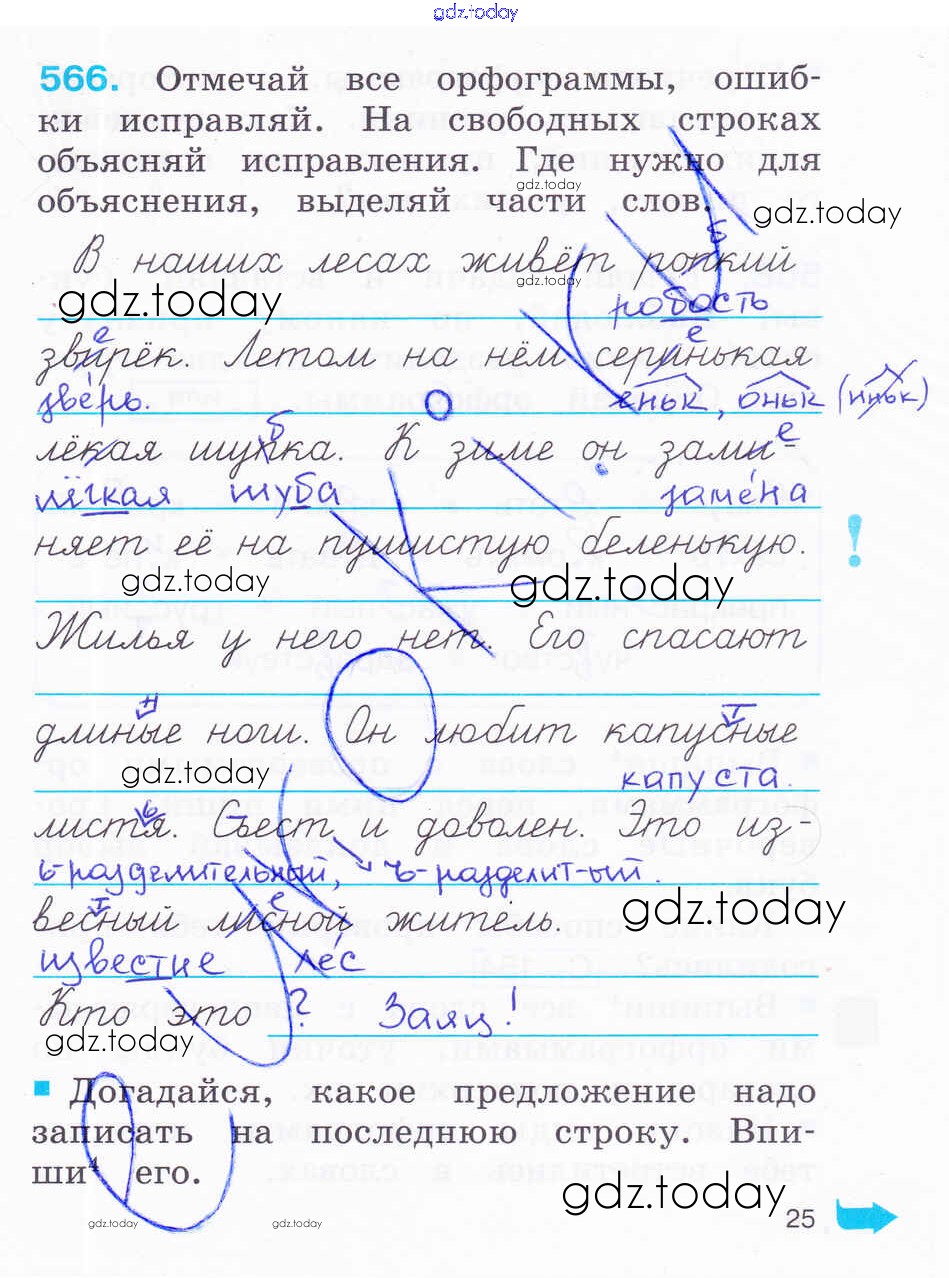 gdz.today
566. Отмечай все орфограммы, ошиб-
ки исправляй. На свободных строках
объясняй исправления. Где нужно для
gdz.today
объяснения, выделяй части слов.
gdz.today
б
В наших лесах живёт попкий
gdz.today
gdz.today
робость
е е
звирёк. Летом на нём серинькая
зверь. еньк, оньк (иньк)
б е
лёкая шупка. К зиме он зами-
лёгкая шуба замена
няет её на пушистую беленькую. !
gdz.today gdz.today
Жилья у него нет. Его спасают
н т
длиные ноги. Он любит капусные
gdz.today
капуста.
ь
листя. Съест и доволен. Это из-
ь-разделительный, ъ-разделит-ый.
т е
весный лисной житель.
gdz.today
известие лес
Кто это ? Заяц!
gdz.today
Догадайся, какое предложение надо
записать на последнюю строку. Впи-
ши⁴ его.
gdz.today
gdz.today gdz.today
25